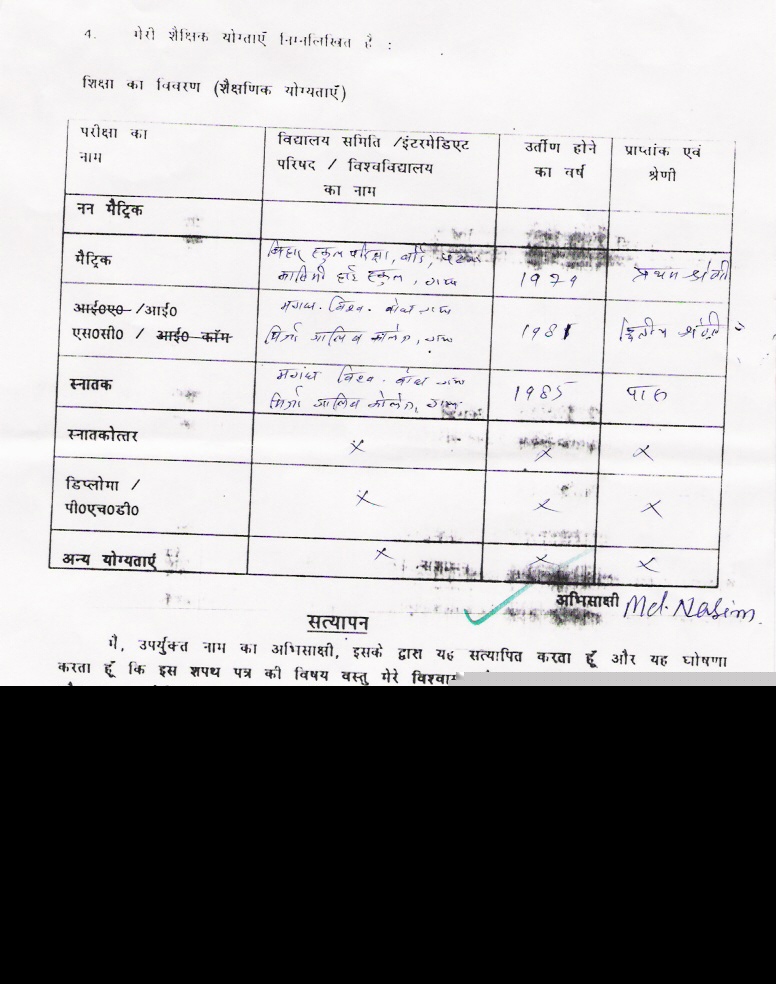 4. मेरी शैक्षिक योग्ताएँ निम्नलिखित है :
शिक्षा का विवरण (शैक्षणिक योग्यताएँ)
परीक्षा का
नाम
विद्यालय समिति /इंटरमेडिएट
परिषद / विश्वविद्यालय
का नाम
उर्तीण होने
का वर्ष
प्राप्तांक एवं
श्रेणी
नन मैट्रिक
मैट्रिक
बिहार स्कुल परीक्षा, बोर्ड, पटना
हाई स्कुल, गया
1979
प्रथम श्रेणी
आई०ए० /आई०
एस०सी० / आई० कॉम
मगध. विश्व. बोध गया
मिर्जा गालिब कालेज, गया
1981
द्वितीय श्रेणी
स्नातक
मगध विश्व. बोध गया
मिर्जा गालिब कोलेज, गया
1985
पास
स्नातकोत्तर
x x x
डिप्लोमा /
पी०एच०डी०
x x x
अन्य योग्यताएं
x x x
अभिसाक्षी Md. Nasim
सत्यापन
मै, उपर्युक्त नाम का अभिसाक्षी, इसके द्वारा यह सत्यापित करता हूँ और यह घोषणा
करता हूँ कि इस शपथ पत्र की विषय वस्तु मेरे